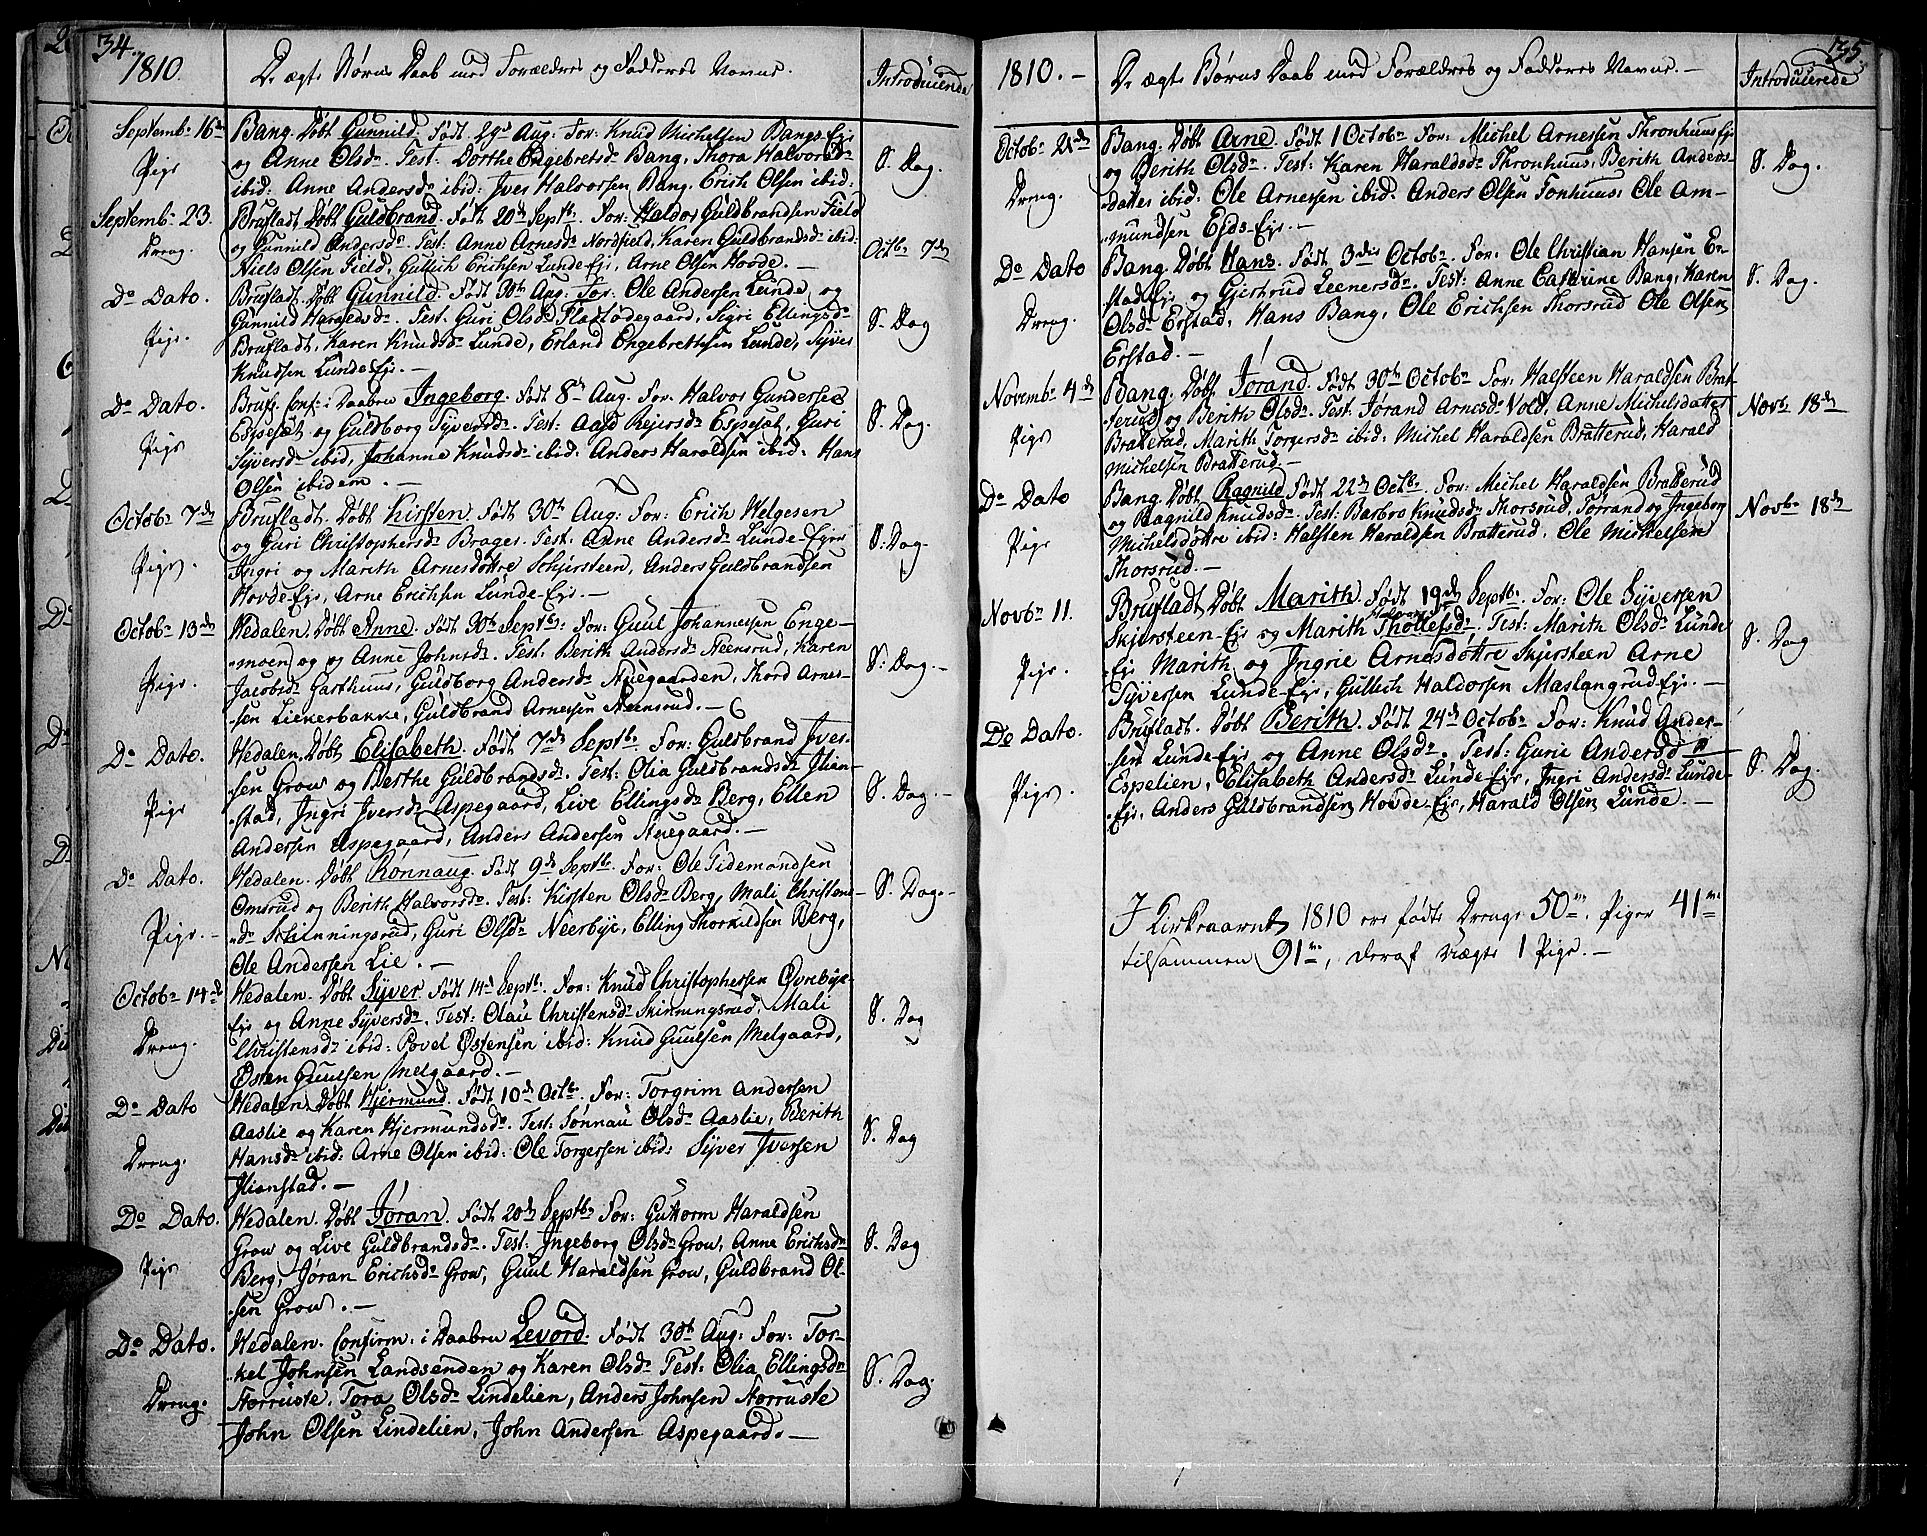 34.
1810.
De ægte Børns Daab med Forældres og Fadderes Navne.
Introducerede
Septembr 16de
Pige
Bang. Døbt Gunnild. Født 29de Aug: For: Knud Michelsen Bangs-Eje
og Anne Olsdr. Test: Dorthe Engebretsdr Bang, Thora Halvorsdr
ibid: Anne Andersdr ibid: Iver Halvorsen Bang, Erich Olsen ibid:
S. Dag.
Septembr 23.
Dreng.
Brufladt, Døbt Guldbrand. Født 20de Septbr. For: Haldor Guldbrandsen Field
og Gunnild Andersdr. Test: Anne Arnesdr Nordfield, Karen Guldbrandsdr ibid:
Niels Olsen Field, Gullich Erichsen Lunde-Eje, Arne Olsen Hovde. —
Octbr 7de
Do Dato.
Pige.
Brufladt. Døbt Gunnild. Født 30te Aug: For: Ole Andersen Lunde og
Gunnild Haraldsdr. Test: Guri Olsdr Fladtødegaard, Sigri Ellingsdr
Brufladt, Karen Knudsdr Lunde, Erland Engebrettsen Lunde, Syver
Knudsen Lunde-Eje. —
S. Dag
Do Dato.
Pige
Brufl. Conf: i Daaben Ingeborg. Født 8de Aug. For: Halvor Gundersen
Espeset og Guldborg Syversdr. Test: Aase Rejersdr Espeset, Guri
Syversdr ibid, Johanne Knudsdr ibid: Anders Haraldsen ibid: Hans
Olsen ibidem. —
S. Dag.
Octobr 7de
Pige.
Brufladt. Døbt Kirsten. Født 30te Aug: For: Erich Helgesen
og Guri Christophersdr Brager. Test: Anne Andersdr Lunde-Ejer
Ingri og Marith Arnesdøttre Schjersteen, Anders Guldbrandsen
Hovde-Eje, Arne Erichsen Lunde-Eje. —
S. Dag.
Octobr 13de
Pige.
Hedalen. Døbt Anne. Født 30te Septbr: For: Guul Johannesen Enge-
-moen og og Anne Johnsdr. Test: Berith Andersdr Steensrud, Karen
Jacobsdr Garthuus, Guldborg Andersdr Stuegaarden, Thord Arne-
-sen Lienerbakke, Guldbrand Arnesen Steensrud. —
S. Dag. —
Do Dato.
Pige
Hedalen. Døbt Elisabeth. Født 7de Septbr. For: Guldbrand Iver-
-sen Grow og Berthe Guldbrandsdr. Test: Olia Guldbrandsdr Ilian-
-stad, Ingri Iversdr Aspegaard, Live Ellingsdr Berg, Ellen
Andersen Aspegaard, Anders Andersen Stuegaard. —
S. Dag. —
Do Dato.
Pige. —
Hedalen. Døbt Rønnaug. Født 9de Septbr. For: Ole Tidemandsen
Omsrud og Berith Halvorsdr. Test: Kirsten Olsdr Berg, Mali Christens-
-dr Skinningsrud, Guri Olsdr Neerbye, Elling Thorkildsen Berg,
Ole Andersen Lie. —
S. Dag. —
Octobr 14de
Dreng.
Hedalen. Døbt Syver. Født 14de Septbr. For: Knud Christophersen Øvrebye-
Eje og Anne Syversdr. Test: Olau Christensdr Skinningsrud, Mali
Christensdr ibid: Povel Østensen ibid: Knud Guulsen Melgaard,
Østen Guulsen Melgaard. —
S. Dag
Do Dato
Dreng.
Hedalen. Døbt Hjermund. Født 10de Octbr. For: Torgrim Andersen
Aaslie og Karen Hjermundsdr. Test: Sønnau Olsdr Aaslie, Berith
Hansdr ibid: Arne Olsen ibid: Ole Torgersen ibid: Syver Iversen
Ilianstad. —
S. Dag
Do Dato.
Pige
Hedalen. Døbt Jøran. Født 20de Septbr For: Guttorm Haraldsen
Grow og Live Guldbrandsdr. Test: Ingeborg Olsdr Grow, Anne Erichsdr
Berg, Jøran Erichsdr Grow, Guul Haraldsen Grow, Guldbrand Ol-
-sen Grow. —
S. Dag
Do Dato.
Dreng.
Hedalen. Confirm: i Daaben Levord: Født 30te Aug: For: Tor-
-kel Johnsen Landsenden og Karen Olsdr Test: Olia Ellingsdr
Storruste, Tora Olsdr Lindelien, Anders Johnsen Storruste
John Olsen Lindelien, John Andersen Aspegaard. —
S. Dag.
35.
1810. —
De ægte Børns Daab med Forældres og Fadderes Navne. —
Introducerede
Octobr 21de
Dreng.
Bang. Døbt Arne. Født 1 Octobr. For: Michel Arnessen Thronhuus Eje
og Berith Olsdr. Test: Karen Haraldsdr Thronhuus, Berith Anders-
-datter ibid: Ole Arnessen ibid: Anders Olsen Tonhuus, Ole Am-
-mundsen Eids-Eje. —
S. Dag.
Do Dato
Dreng.
Bang. Døbt Hans. Født 3die Octobr. For: Ole Christian Hansen Er-
stad Eje og Gjertrud Leenersdr. Test: Anne Cathrine Bang, Karen
Olsdr Erstad, Hans Bang, Ole Erichsen Thorsrud Ole Olsen
Erstad. —
S. Dag.
Novembr 4de
Pige
Bang. Døbt Jørand. Født 30te Octobr For: Halsteen Haraldsen Brat-
terud og Berith Olsdr. Test: Jørand Arnesdr Vold, Anne Michelsdatter
Bratterud, Marith Torgersdr ibid: Michel Haraldsen Bratterud, Harald
Michelsen Bratterud. —
Novbr 18de
Do Dato
Pige
Bang. Døbt Ragnild. Født 22de Octbr. For: Michel Haraldsen Bratterud
og Ragnild Knudsdr. Test: Barbro Knudsdr Thorsrud, Jørrand og Ingeborg
Michelsdøttre ibid: Halsten Haraldsen Bratterud, Ole Michelsen
Thorsrud. —
Novbr 18de
Novbr 11.
Pige.
Brufladt, Døbt Marith. Født 19de Septbr. For: Ole Syversen
Skjersteen-Eje og Marith Thollefsdr. Test: Marith Olsdr Lunde
-Eje Marith og Ingrie Arnesdøttre Skjersteen Arne
Syversen Lunde-Eje, Gullich Haldorsen Maslangrud-Eje. —
S. Dag
Do Dato.
Pige.
Brufladt. Døbt Berith. Født 24de Octobr For: Knud Ander-
-sen Lunde-Eje og Anne Olsdr. Test: Gurie Andersdr
Espelien, Elisabeth Andersdr Lunde-Eje, Ingri Andersdr Lunde-
-Eje, Anders Guldbrandsen Hovde-Eje, Harald Olsen Lunde. —
S. Dag
I Kirkeaaret 1810 ere fødte Drenge 50, Piger 41
tilsammen 91, deraf uægte 1 Pige. —